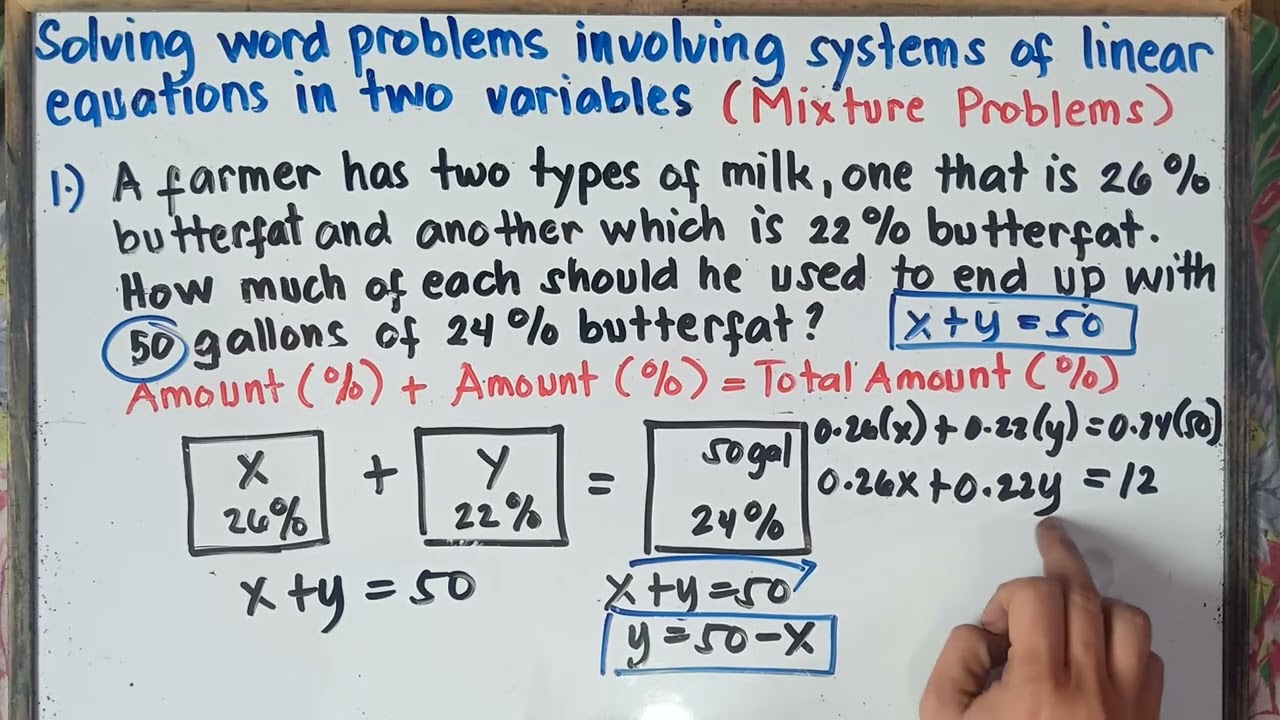 Solving word problems involving systems of linear
equations in two variables (Mixture Problems)
1.) A farmer has two types of milk, one that is 26%
butterfat and another which is 22% butterfat.
How much of each should he used to end up with
50 gallons of 24% butterfat?
x+y=50
Amount (%) + Amount (%) = Total Amount (%)
x
26%
+
y
22%
=
50gal
24%
0.26(x)+0.22(y)=0.24(50)
0.26x+0.22y=12
x+y=50
x+y=50
y=50-x